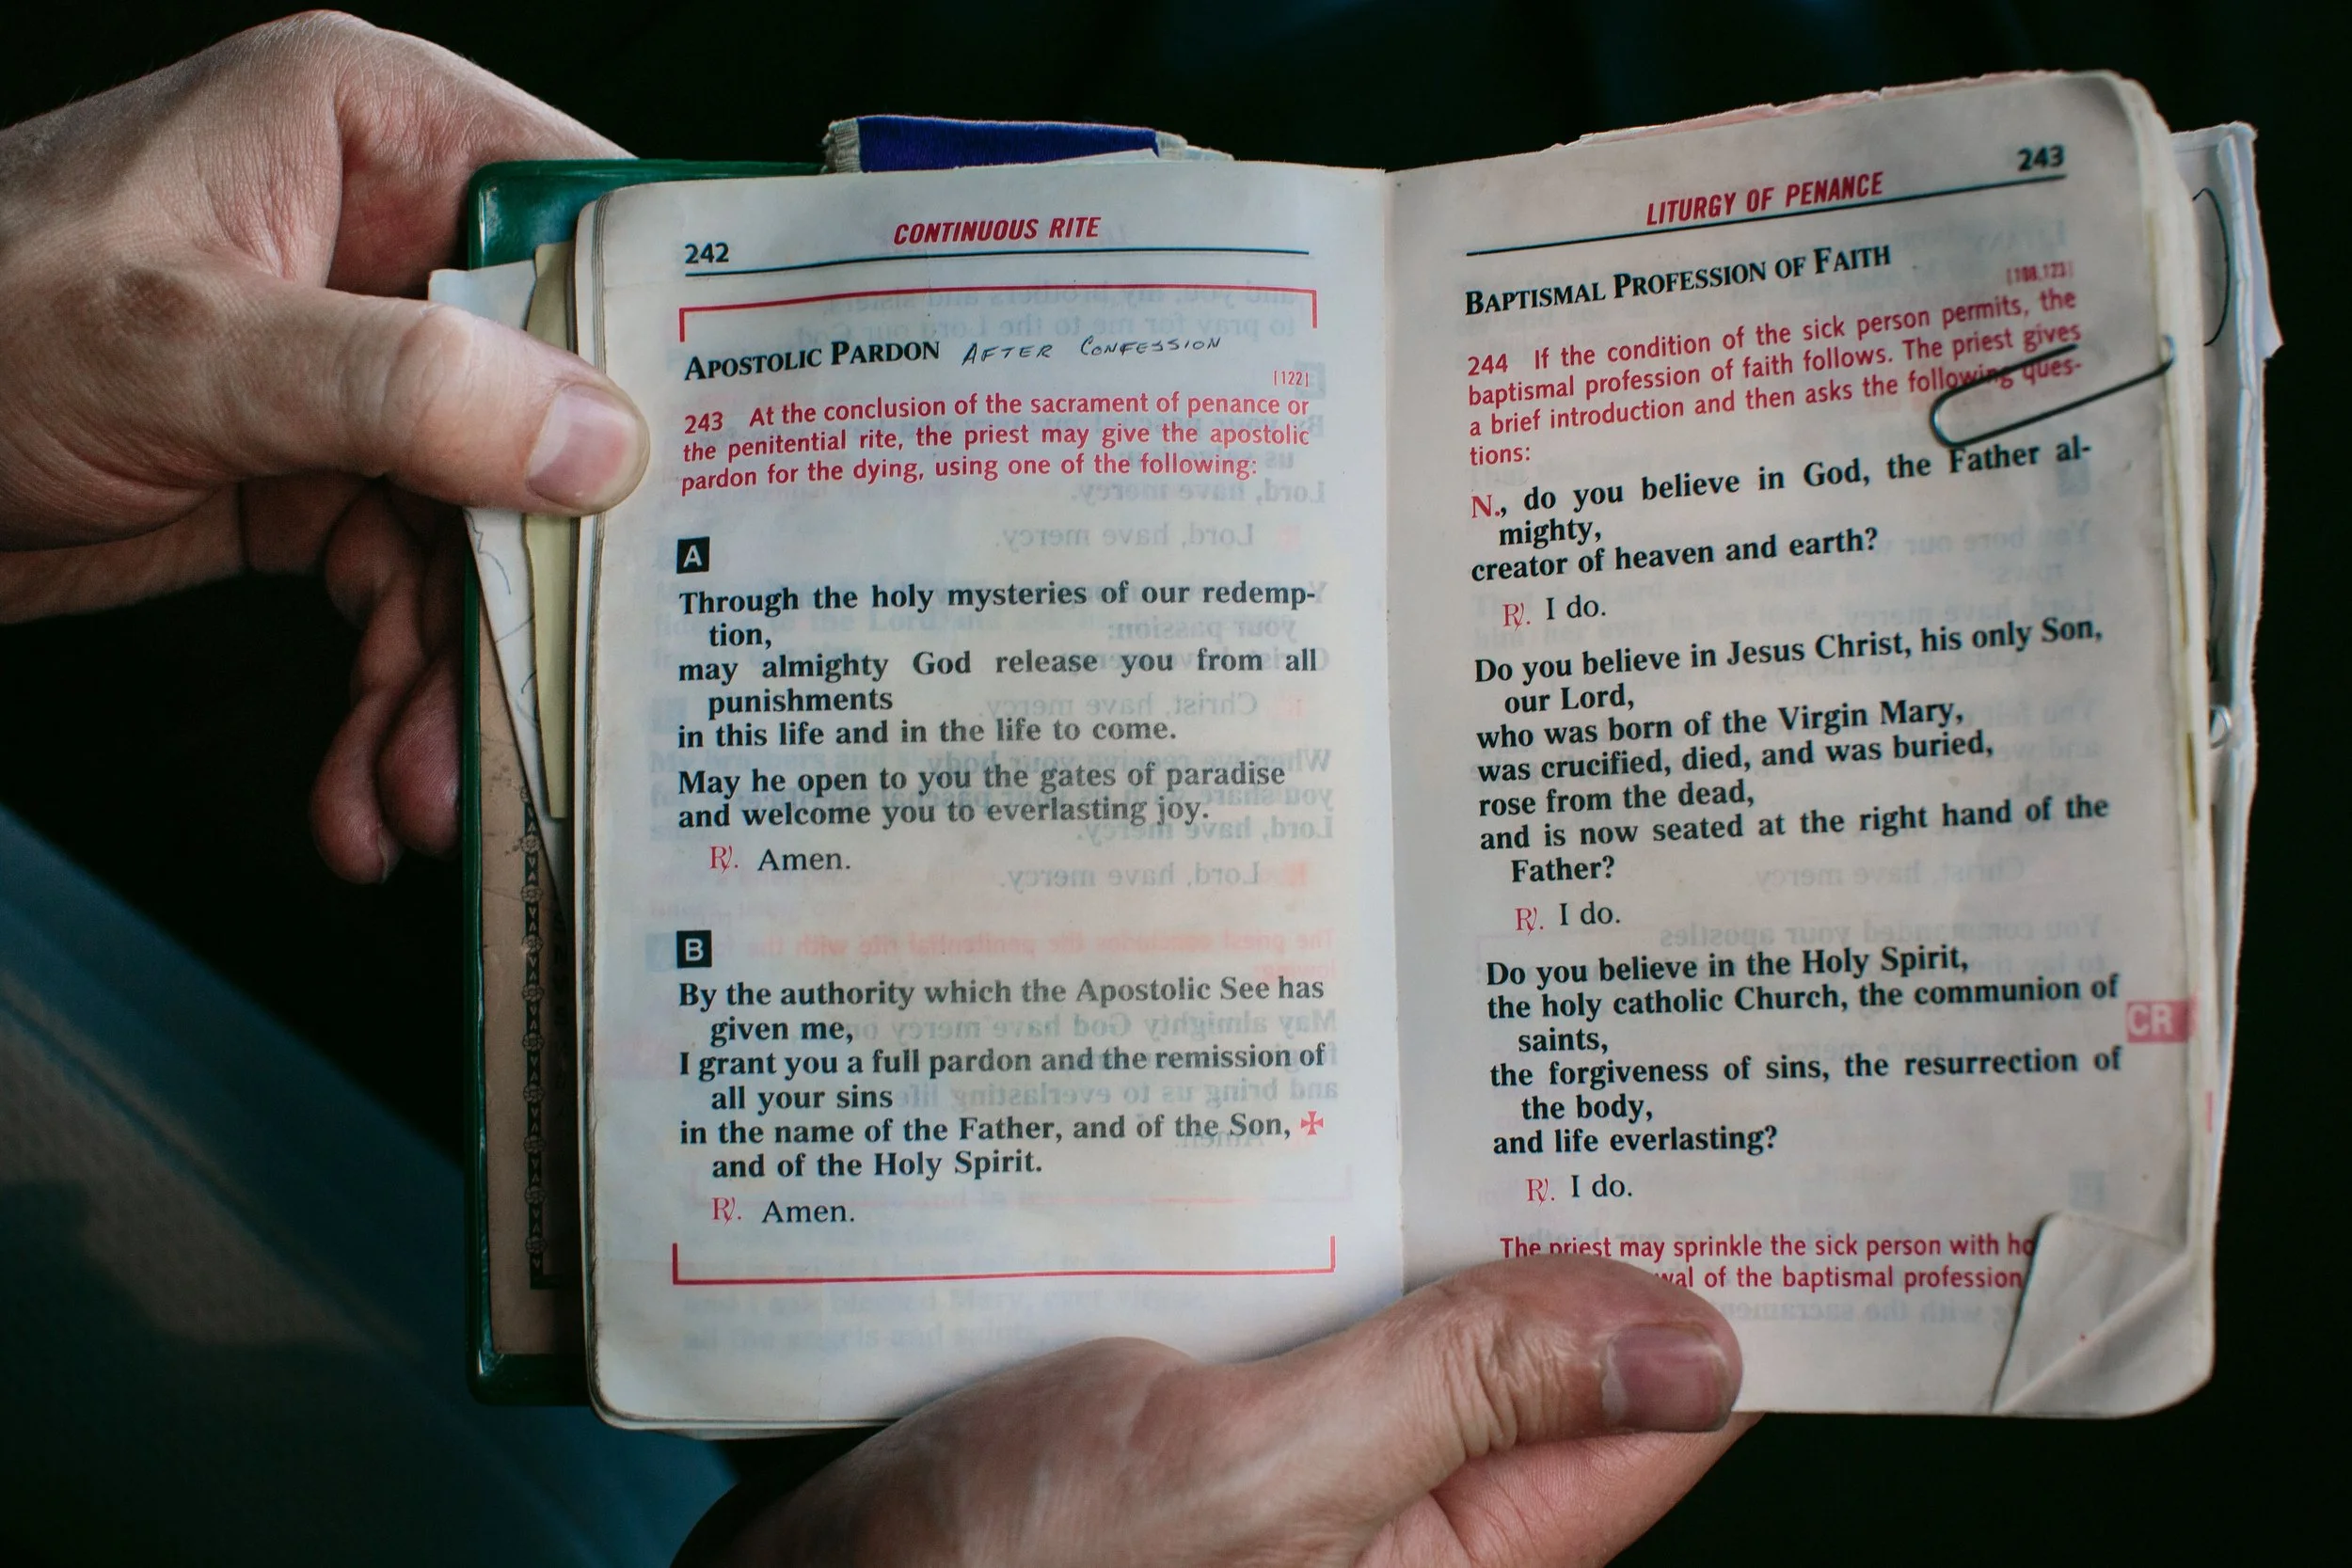 242
CONTINUOUS RITE
APOSTOLIC PARDON AFTER CONFESSION
[122]
243 At the conclusion of the sacrament of penance or
the penitential rite, the priest may give the apostolic
pardon for the dying, using one of the following:
A
Through the holy mysteries of our redemp-
tion,
may almighty God release you from all
punishments
in this life and in the life to come.
May he open to you the gates of paradise
and welcome you to everlasting joy.
℟. Amen.
B
By the authority which the Apostolic See has
given me,
I grant you a full pardon and the remission of
all your sins
in the name of the Father, and of the Son, ✠
and of the Holy Spirit.
℟. Amen.
LITURGY OF PENANCE
243
BAPTISMAL PROFESSION OF FAITH
[108, 123]
244 If the condition of the sick person permits, the
baptismal profession of faith follows. The priest gives
a brief introduction and then asks the following ques-
tions:
N., do you believe in God, the Father al-
mighty,
creator of heaven and earth?
℟. I do.
Do you believe in Jesus Christ, his only Son,
our Lord,
who was born of the Virgin Mary,
was crucified, died, and was buried,
rose from the dead,
and is now seated at the right hand of the
Father?
℟. I do.
Do you believe in the Holy Spirit,
the holy catholic Church, the communion of
saints,
the forgiveness of sins, the resurrection of
the body,
and life everlasting?
℟. I do.
CR
The priest may sprinkle the sick person with
of the baptismal profession